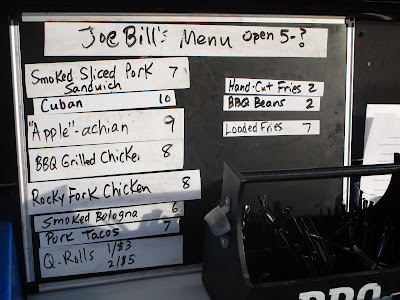 Joe Bill's Menu open 5-?
Smoked Sliced Pork 7
Sandwich
Cuban 10
"Apple"-achian 9
BBQ Grilled Chicken 8
Rocky Fork Chicken 8
Smoked Bologna 6
Pork Tacos 7
Q-Rolls 1/$3
2/$5
Hand-Cut Fries 2
BBQ Beans 2
Loaded Fries 7
BBQ